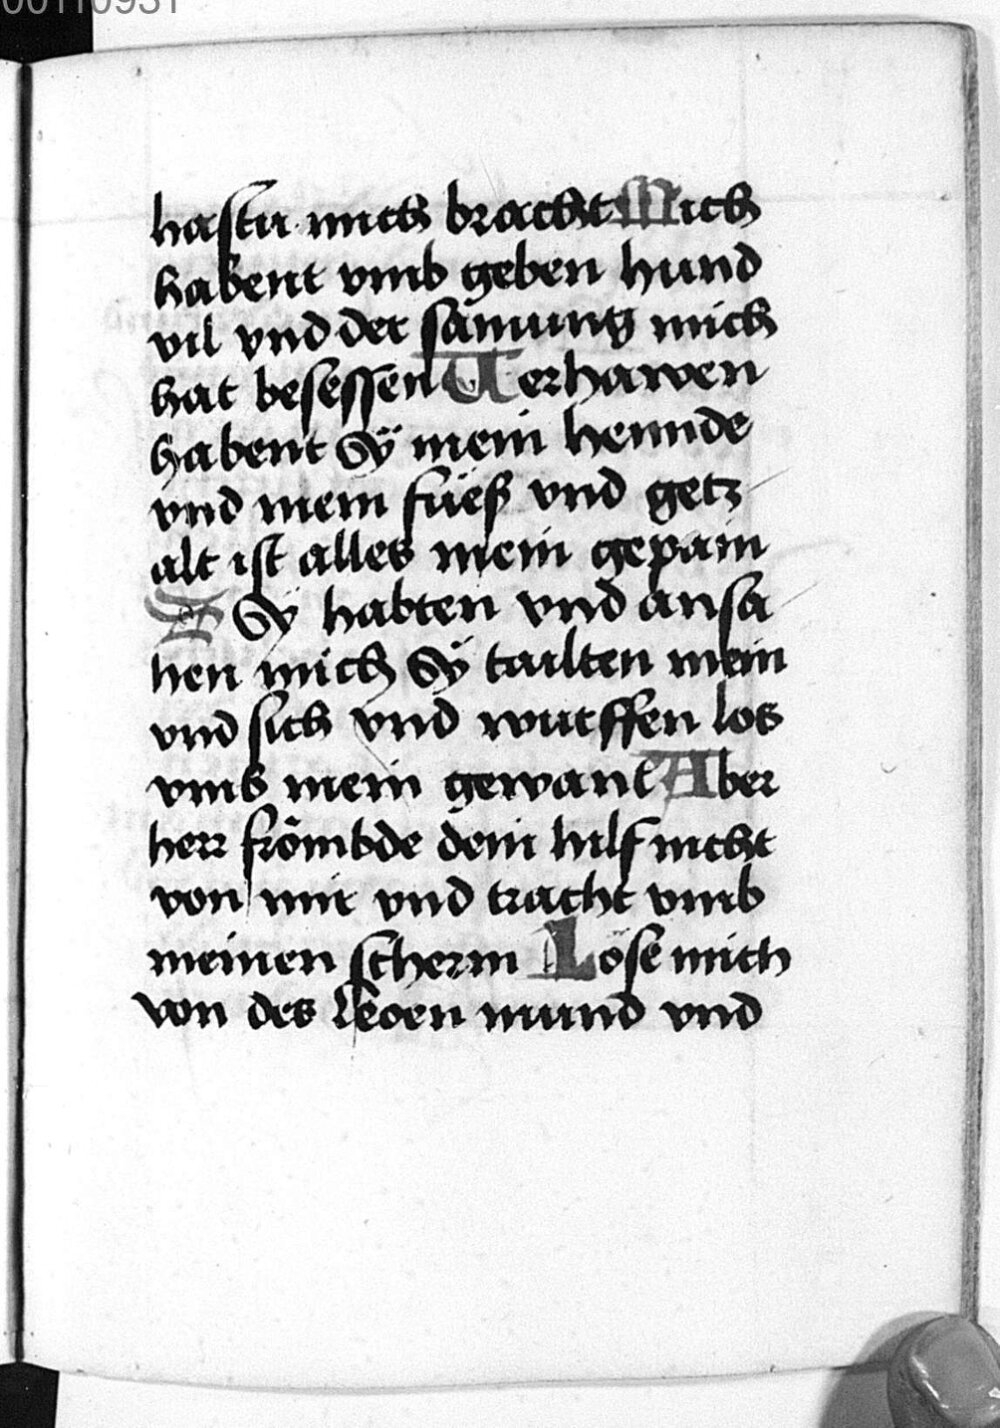 00110931
hastu mich bracht Mich
habent vmb geben hund
vil vnd der samung mich
hat besessen Uerhawen
habent Sÿ mein hennde
vnd mein füeß vnd getz
alt ist alles mein gepain
Sÿ habten vnd ansa
hen mich Sÿ tailten mein
vnd sich vnd wurffen los
vmb mein gewant Aber
herr frömbde dein hilf nicht
von mir vnd tracht vmb
meinen scherm Löse mich
von des Leoen mund vnd